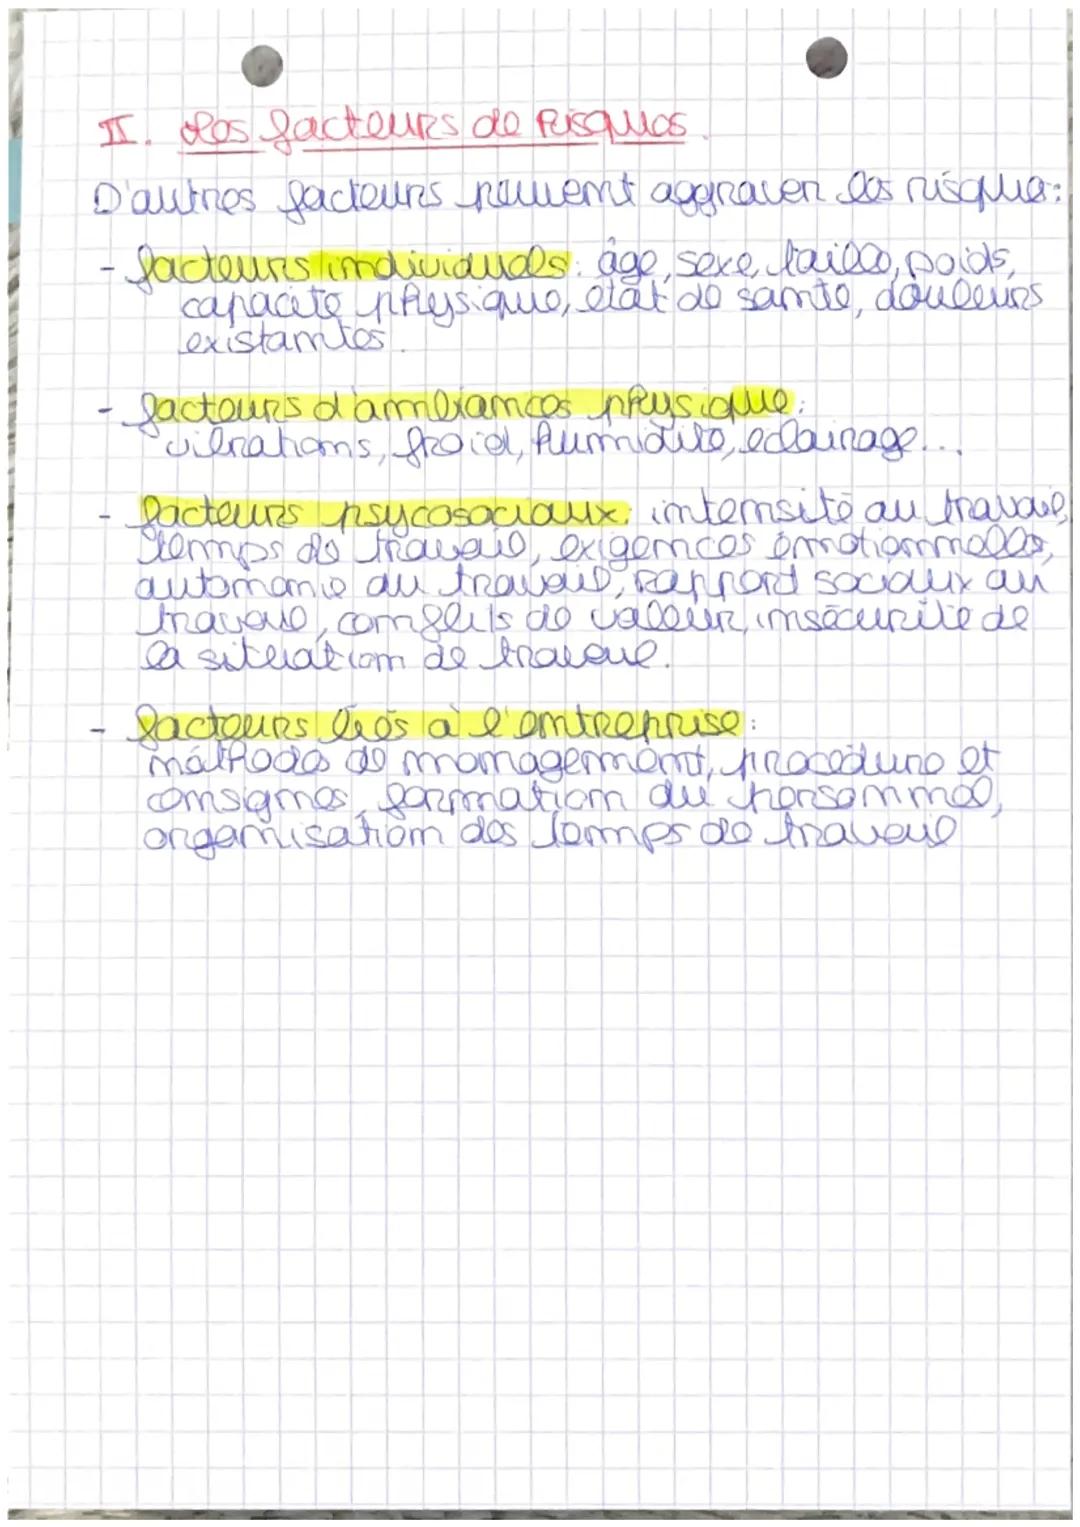 II. Les facteurs de risques.
D'autres facteurs peuvent aggraver les risque:
- facteurs individuels: âge, sexe, taille, poids,
capacité physique, état de santé, douleurs
existantes.
- facteurs d'ambiances physique:
vibrations, froid, humidité, eclairage...
- facteurs psycosociaux: intensité au travail,
temps de travail, exigences émotionnelles,
automanie au travail, rapport sociaux au
travail, conflits de valeur, insécurité de
la situation de travail.
- facteurs liés à l'entreprise:
méthodes de management, procédure et
consignes, formation du personnel,
organisation des temps de travail